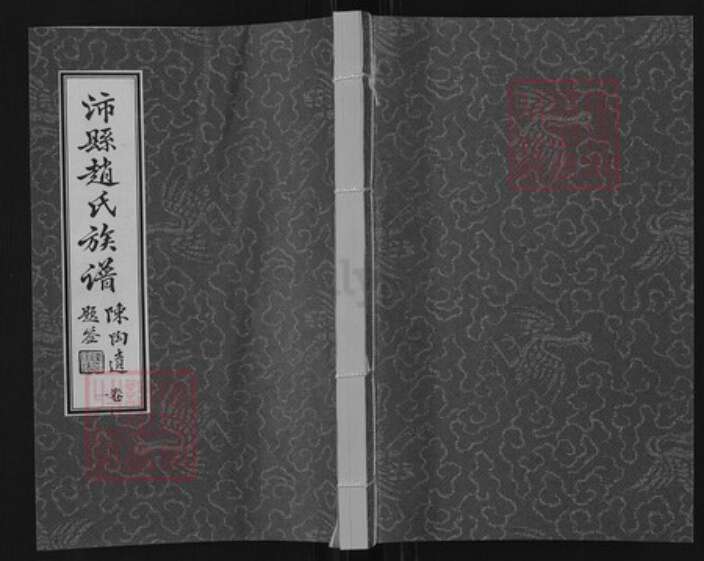 沛縣趙氏族谱
陳陶遺
題签
卷一